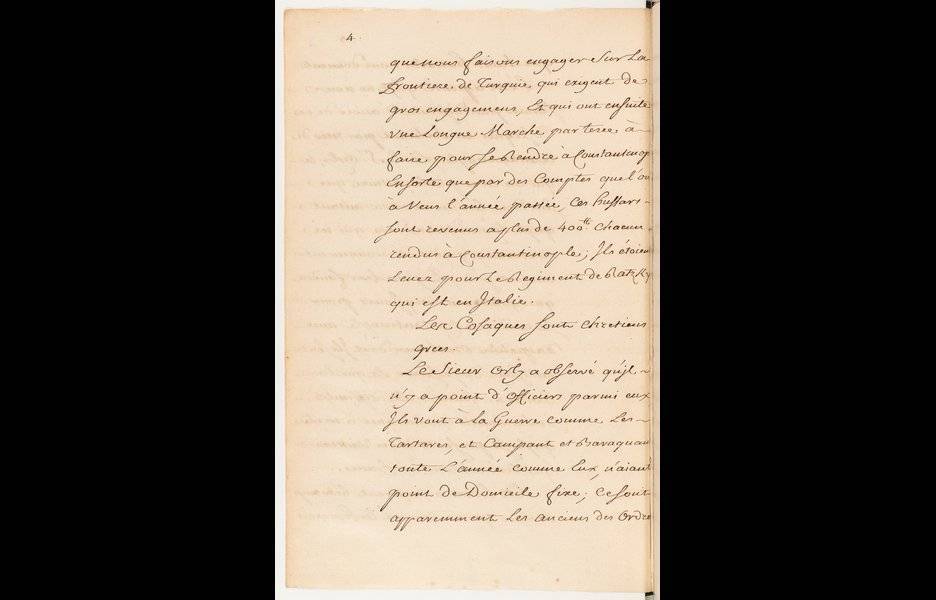 4.
que nous faisons engager sur La
frontiere de Turquie qui exigent de
gros engagemens, Et qui ont ensuite
vne Longue Marche par terre à
faire pour se Rendre à Constantinop
Ensorte que par des Comptes que l'on
à Veus l'année passée, Ces hussars
sont revenus a plus de 400 tt chacun
rendus à Constantinople; Ils étoien
Levez pour Le Regiment de Ratzky
qui est en Italie.
Les Cosaques sont chretiens
grecs.
Le Sieur Orly a observé qu'il
n'y a point d'officiers parmi eux
Ils vont à La Guerre comme Les
Tartares, et Campant et Baraquan
toute L'année comme Eux, n'aiant
point de Domicile fixe; Ce sont
apparemment Les anciens des Ordre